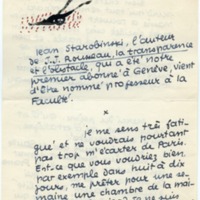 Jean Starobinski, l'auteur
de J.J. Rousseau, la transparence
et l'obstacle, qui a été notre
premier abonné à Genève, vient
d'être nommé professeur à la
Faculté.
*
je me sens très fati-
gué et ne voudrais pourtant
pas trop m'écarter de Paris.
Est-ce que vous voudriez bien,
par exemple dans huit à dix
jours, me prêter pour une se-
maine une chambre de la mai-